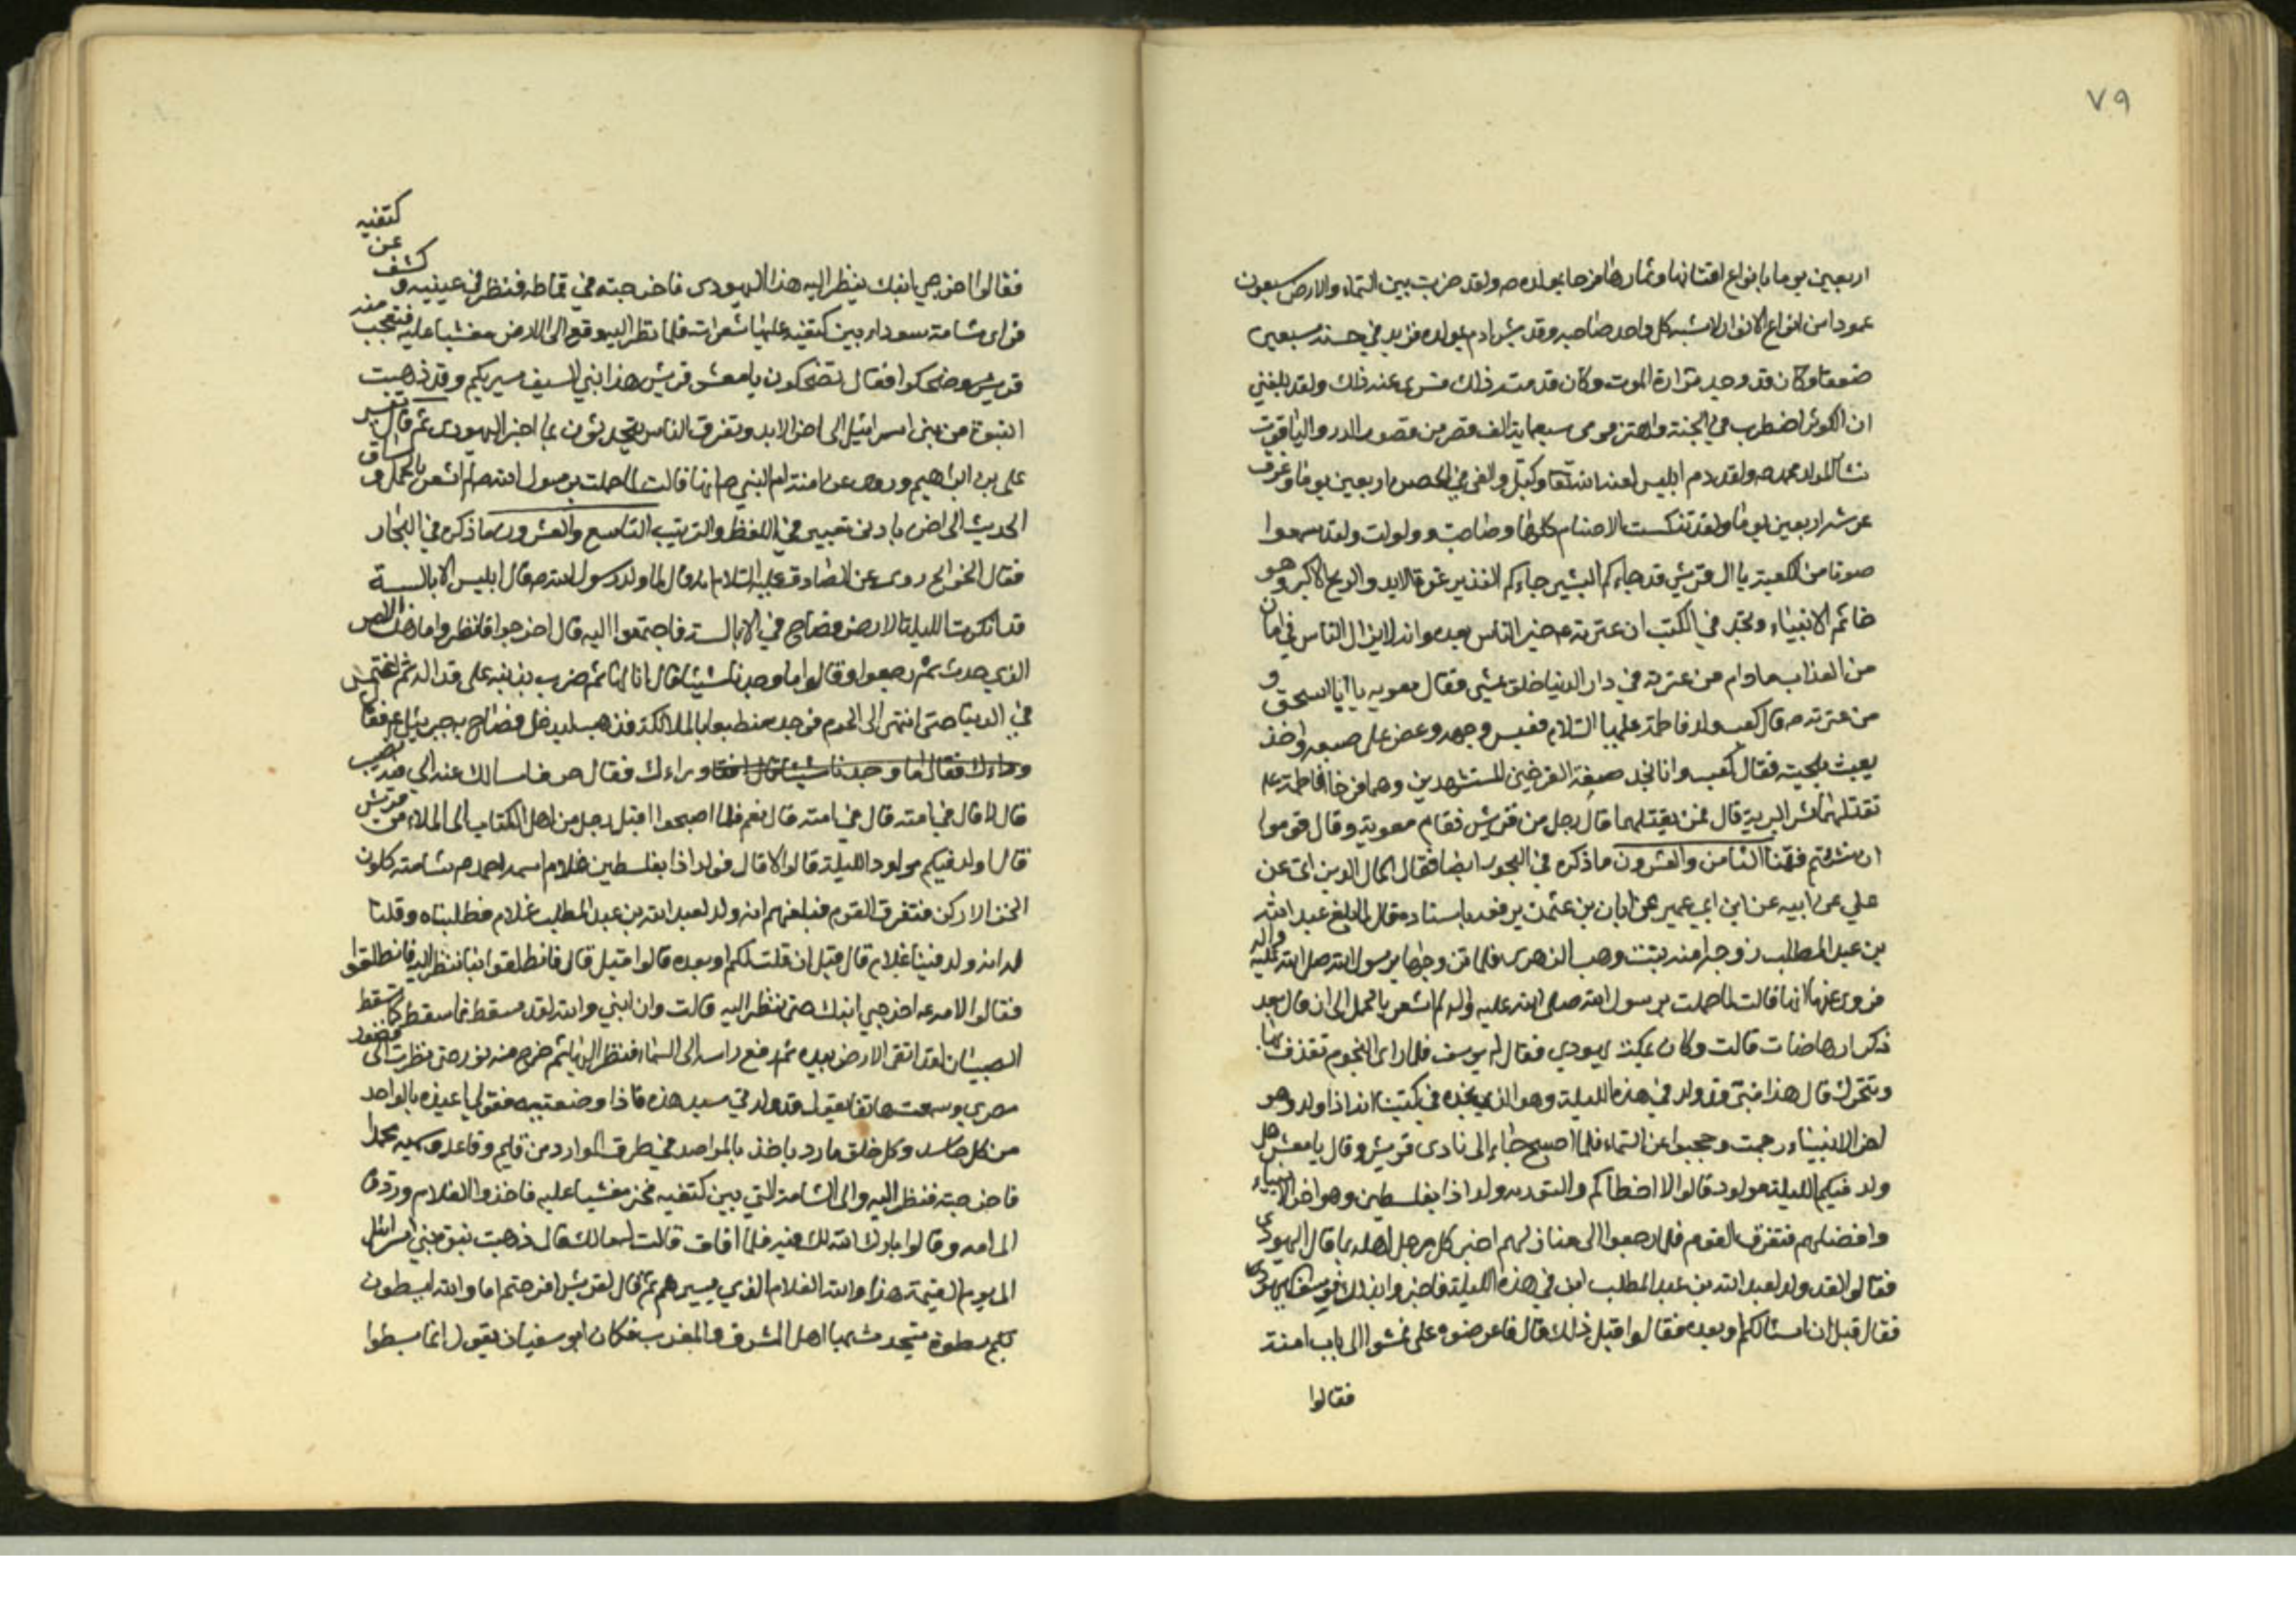 ٧٩
اربعين يوما بانواع افنانها وثمارها فرحا بمولده ص ولقد ضربت بين السماء والارض سبعون
عمودا من انواع الانوار لا يشبه كل واحد صاحبه وقد بشر ادم بمولده فزيد في حسنه سبعين
ضعفا وكان قد وجد مرارة الموت وكان قد مسه ذلك فسرى عنه ذلك ولقد بلغني
ان الكوثر اضطرب في الجنة واهتز فرمى سبعماية الف قصر من قصور الدر والياقوت
نثارا لمولد محمد ص ولقد زم ابليس لعنه الله تعا وكبل والقى في الحصن اربعين يوما وغرق
عرشه اربعين يوما ولقد تنكست الاصنام كلها وصاحت وولولت ولقد سمعوا
صوتا من الكعبة يا ال قريش قد جاءكم البشير جاءكم النذير عزة الابد والربح الاكبر وهو
خاتم الانبياء ونجد في الكتب ان عترته ع خير الناس بعده وانه لا يزال الناس في امان
من العذاب مادام من عترته في دار الدنيا خلق يمشي فقال معويه يا ابا اسحق و
من عترته ص قال كعب ولد فاطمة عليها السلام فعبس وجهه وعض على شفتيه واخذ
يعبث بلحيته فقال كعب وانا نجد صفة الفرخين المستشهدين وهما فرخا فاطمة ع
يقتلهما شر البرية قال فمن يقتلهما قال رجل من قريش فقام معوية وقال قوموا
ان شئتم فقمنا الثامن والعشرون ما ذكره في البحور ايضا فقال اكمال الدين ابى عن
علي عن ابيه عن ابن ابي عمير عن ابان بن عثمن يرفعه باسناده قال لما بلغ عبد الله
بن عبد المطلب زوجه امنة بنت وهب الزهرى فلما تزوجها برسول الله صلى الله عليه واله
فروى عنها انها قالت لما حملت برسول الله صلى الله عليه واله لم اشعر بالحمل الى ان قال بعد
ذكر ارهاصات قالت وكان بمكة يهودي فقال له يوسف فلما راى النجوم تقذف بها
وتتحرك قال هذا نبي قد ولد في هذه الليلة وهو الذي نجده في كتبنا انه اذا ولد وهو
اخر الانبياء رجمت وحجبوا عن السماء فلما اصبح جاء الى نادى قريش وقال يا معشر هل
ولد فيكم الليلة مولود قالوا لا اخطاكم والتوريه ولد اذا بفلسطين وهو اخر الانبياء
وافضلهم فتفرق القوم فلما رجعوا الى منازلهم اخبر كل رجل اهله بما قال اليهودى
فقالوا لقد ولد لعبد الله بن عبد المطلب ابن في هذه الليلة فاخبروا بذلك يوسف اليهودى
فقال قبل ان اسئالكم او بعده فقالوا قبل ذلك قال فاعرضوه على فمشوا الى باب امنة
فقالوا
كتفيه
عن
كشف
فقالوا اخرجي ابنك ينظر اليه هذا اليهودى فاخرجته في قماطه فنظر في عينيه و
فراى شامة سوداء بين كتفيه عليها شعرات فلما نظر اليه وقع الى الارض مغشيا عليه فتعجب منه
قريش وضحكوا فقال تضحكون يا معشر قريش هذا نبي السيف ليبيرنكم وقد ذهبت
النبوة من بنى اسرائيل الى اخر الابد وتفرق الناس يتحدثون بما اخبر اليهودى ثم قال تفسير
على بن ابراهيم وروى عن امنة ام النبي ص انها قالت لما حملت برسول الله ص لم اشعر بالحمل وساق
الحديث الى اخره بادنى تغيير في اللفظ والترتيب التاسع والعشرون ما ذكره في البحار
فقال الخرائج روى عن الصادق عليه السلام انه قال لما ولد رسول الله ص قال ابليس لابالسته
قد انكرت الليلة الارض فصاح في الابالسة فاجتمعوا اليه قال اخرجوا فانظروا ما هذا الامر
الذي حدث ثم رجعوا وقالوا ما وجدنا شيئا قال انا لها ثم ضرب بذنبه على قداله ثم اغتمس
في الدنيا حتى انتهى الى الحرم فوجده منطبعا بالملائكة فذهب ليدخل فصاح به جبرئيل ع فقال
وراءك فقال ما وجدنا شيئا قال فقا وراءك فقال حرف اسالك عنه الي فيه نصيب
قال لا قال في امته قال في امته قال نعم فلما اصبحوا اقبل رجل من اهل الكتاب الى الملاء من قريش
قال اولد فيكم مولود الليلة قالوا لا قال فولد اذا بفلسطين غلام اسمه احمد ص به شامة كلون
الخز الادكن فتفرق القوم فبلغهم انه ولد لعبد الله بن عبد المطلب غلام فطلبناه وقلنا
له انه ولد فينا غلام قال قبل ان قلت لكم او بعده قالوا قبل قال فانطلقوا بنا ننظر اليه فانطلقوا
فقالوا لامه ع اخرجي ابنك حتى ننظر اليه قالت وان ابني والله لقد سقط فما سقط كما سقط
الصبيان لقد اتقى الارض بيديه ثم رفع راسه الى السماء فنظر اليها ثم خرج منه نور حتى نظرت الى قصور
بصرى وسمعت هاتفا يقول قد ولدتي سيد هذه فاذا وضعتيه فقولي اعيذه بالواحد
من كل حاسد وكل خلق مارد ياخذ بالمراصد في طرق الموارد من قايم وقاعد وسميه محمدا
فاخرجته فنظر اليه والى الشامة التي بين كتفيه فخر مغشيا عليه فاخذوا الغلام وردوه
الى امه وقالوا بارك الله لك فيه فلما افاق قالت له مالك قال ذهبت نبوة بني اسرائيل
الى يوم القيمة هذا والله الغلام الذي يبيرهم ثم قال لقريش افرحتم اما والله ليسطون
بكم سطوة يتحدث بها اهل المشرق والمغرب فكان ابو سفيان يقول انما يسطوا